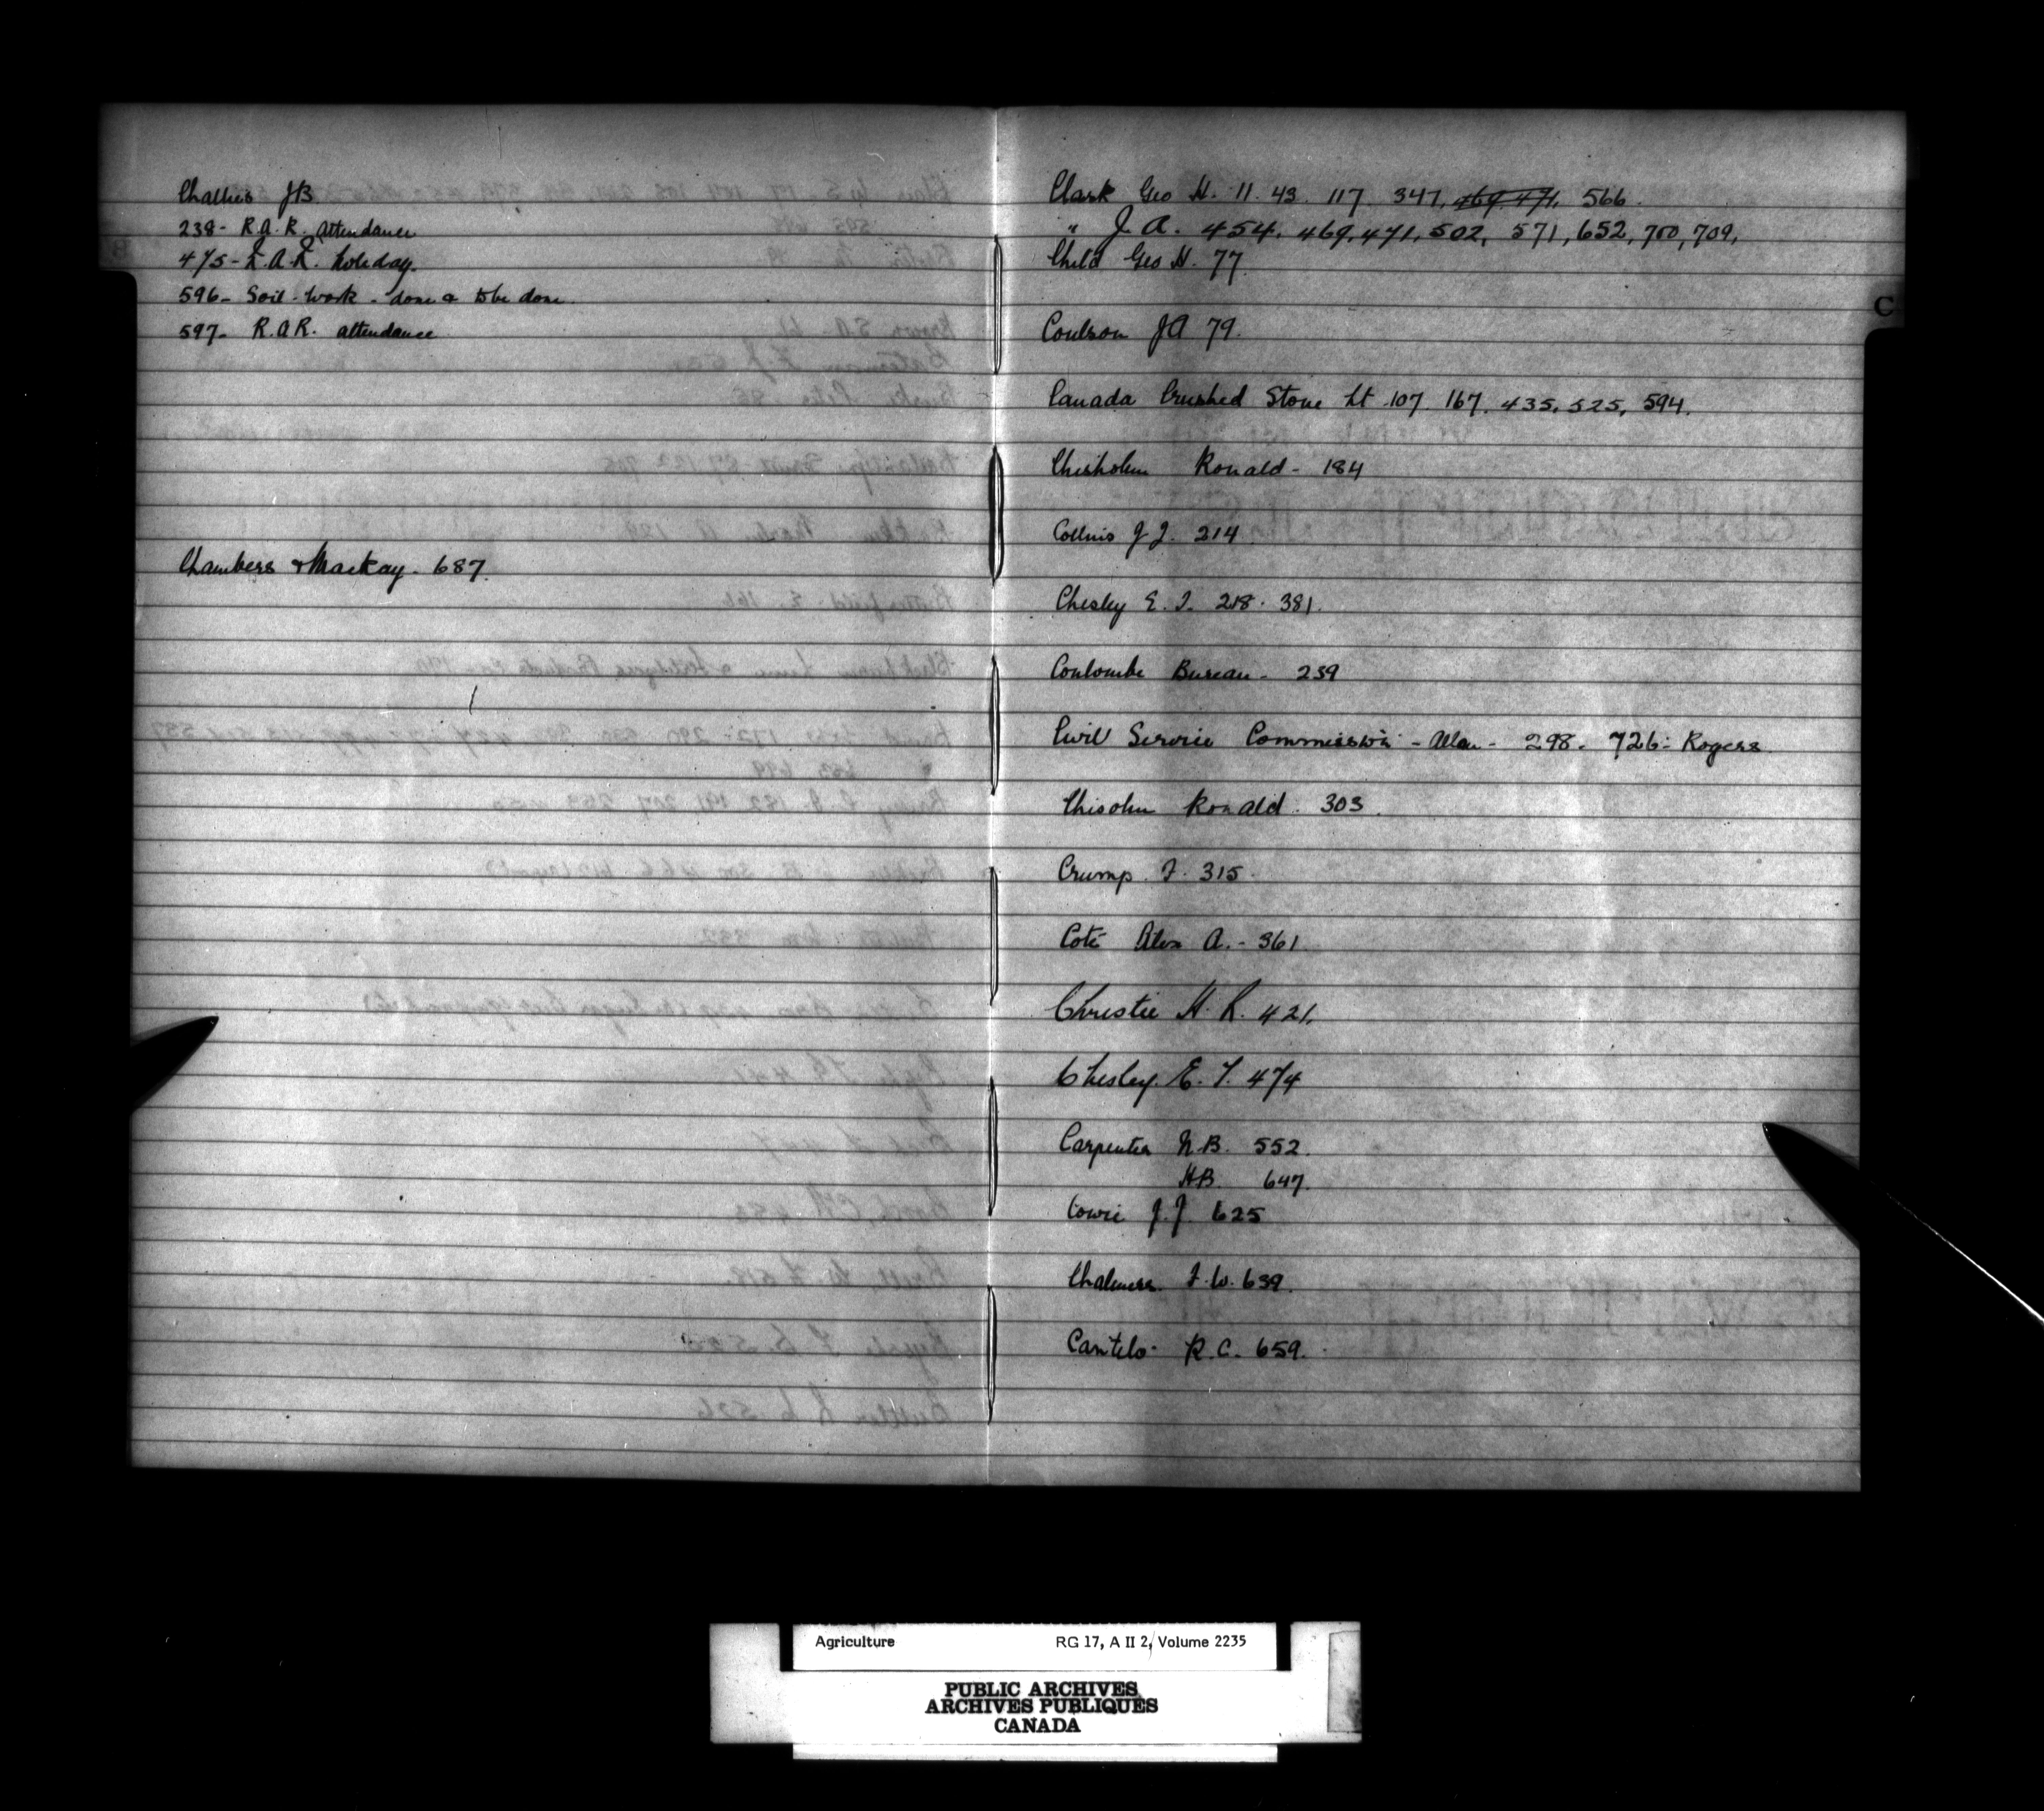 Challies JB
238- R.A.R. Attendance
475- R.A.R. holiday.
596- Soil-work - done & to be done
597- R.A.R. attendance
Chambers & Mackay. 687.
Clark Geo H. 11. 43. 117. 347, 469, 471, 566.
" J. A. 454, 469, 471, 502, 571, 652, 700, 709,
Child Geo H. 77.
C
Coulson JA 79.
Canada Crushed Stone Lt 107. 167. 435, 525, 594.
Chisholm Ronald - 184
Collins J J. 214
Chesley E. T. 218. 381.
Coulombe Bureau - 239
Civil Service Commission - Allan - 298. 726 - Rogers
Chisolm Ronald. 303.
Crump. F. 315.
Coté Alex A. - 361
Christie H. R. 421.
Chesley. E. T. 474
Carpenter N.B. 552.
HB. 647.
Cowie J.J. 625
Chalmers F.W. 639.
Cantelo - R.C. 659.
Agriculture RG 17, A II 2, Volume 2235
PUBLIC ARCHIVES
ARCHIVES PUBLIQUES
CANADA